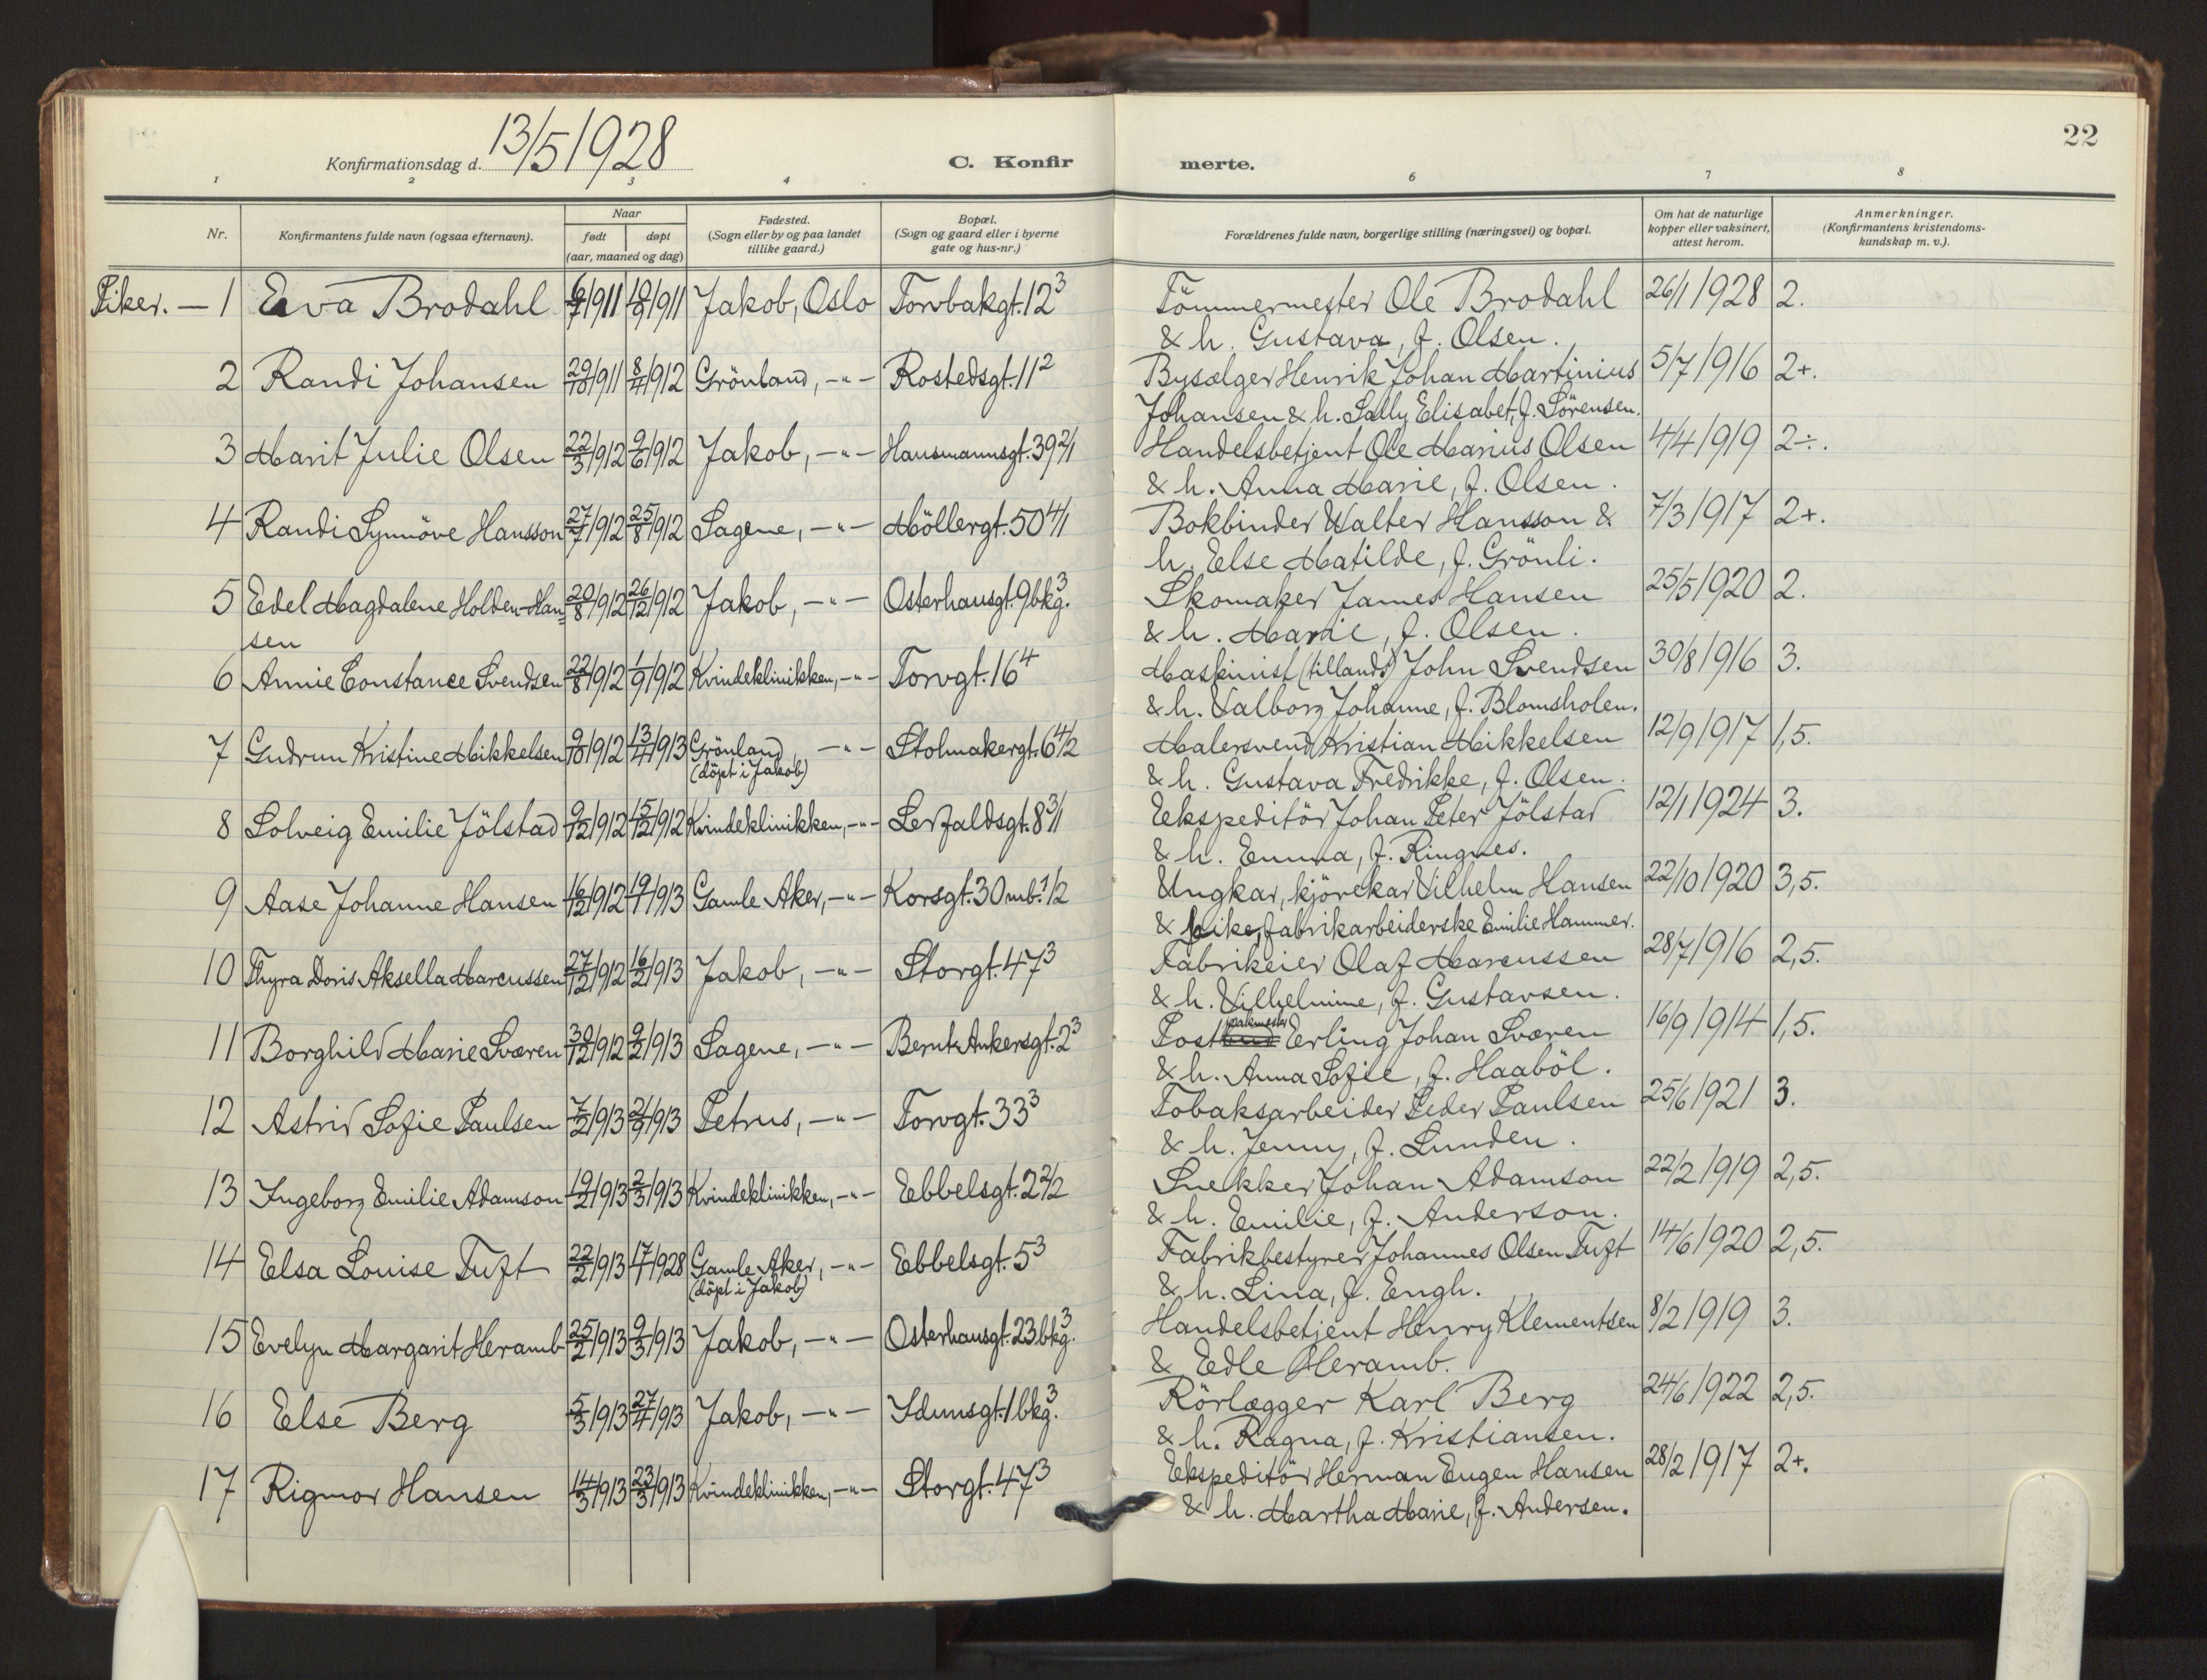 22
Konfirmationsdag d. 13/5 1928
C. Konfir merte.
1 2 3 4 6 7 8
Nr.
Konfirmantens fulde navn (ogsaa efternavn).
Naar
født døpt
(aar, maaned og dag)
Fødested.
(Sogn eller by og paa landet
tillike gaard.)
Bopæl.
(Sogn og gaard eller i byerne
gate og hus-nr.)
Forældrenes fulde navn, borgerlige stilling (næringsvei) og bopæl.
Om hat de naturlige
kopper eller vaksinert,
attest herom.
Anmerkninger.
(Konfirmantens kristendoms-
kundskap m. v.).
Piker. — 1 Eva Brodahl 6/7 1911 10/9 1911 Jakob, Oslo Torvbakgt. 12³ Tömmermester Ole Brodahl 26/1 1928 2.
& h. Gustava, f. Olsen.
2 Randi Johansen 29/10 1911 8/4 1912 Grönland, -"- Rostedsgt. 11² Bysælger Henrik Johan Martinius 5/7 1916 2+.
Johansen & h. Sally Elisabet, f. Sörensen.
3 Marit Julie Olsen 22/3 1912 9/6 1912 Jakob, -"- Hausmannsgt. 39 2/1 Handelsbetjent Ole Marius Olsen 4/4 1919 2÷.
& h. Anna Marie, f. Olsen.
4 Randi Synnöve Hansson 27/7 1912 25/8 1912 Sagene, -"- Möllergt. 50 4/1 Bokbinder Walter Hansson & 7/3 1917 2+.
h. Else Matilde, f. Grönli.
5 Edel Magdalene Holden-Han= 20/8 1912 26/12 1912 Jakob, -"- Osterhausgt. 9 bkg.³ Skomaker James Hansen 25/5 1920 2.
sen & h. Marie, f. Olsen.
6 Annie Constance Svendsen 22/8 1912 1/9 1912 Kvindeklinikken, -"- Torvgt. 16⁴ Maskinist (tillands) John Svendsen 30/8 1916 3.
& h. Valborg Johanne, f. Blomsholen.
7 Gudrun Kristine Mikkelsen 9/10 1912 13/4 1913 Grönland, -"- Stolmakergt. 6 4/2 Malersvend Kristian Mikkelsen 12/9 1917 1,5.
(döpt i Jakob) & h. Gustava Fredrikke, f. Olsen.
8 Solveig Emilie Jölstad 9/12 1912 15/12 1912 Kvindeklinikken, -"- Lerfaldsgt. 8 3/1 Ekspeditör Johan Peter Jölstad 12/1 1924 3.
& h. Emma, f. Ringnes.
9 Aase Johanne Hansen 16/12 1912 19/1 1913 Gamle Aker, -"- Korsgt. 30 mb. 1/2 Ungkar, kjörekar Vilhelm Hansen 22/10 1920 3,5.
& pike, fabrikarbeiderske Emilie Hammer.
10 Thyra Doris Aksella Marcussen 27/12 1912 16/2 1913 Jakob, -"- Storgt. 47³ Fabrikeier Olaf Marcussen 28/7 1916 2,5.
& h. Vilhelmine, f. Gustavsen.
11 Borghild Marie Sværen 30/12 1912 9/2 1913 Sagene, -"- Bernt Ankersgt. 2³ Postpakmester Erling Johan Sværen 16/9 1914 1,5.
& h. Anna Sofie, f. Haaböl.
12 Astrid Sofie Paulsen 7/2 1913 21/9 1913 Petrus, -"- Torvgt. 33³ Tobaksarbeider Peder Paulsen 25/6 1921 3.
& h. Jenny, f. Lunden.
13 Ingeborg Emilie Adamson 19/2 1913 2/3 1913 Kvindeklinikken, -"- Ebbelsgt. 2 2/2 Snekker Johan Adamson 22/2 1919 2,5.
& h. Emilie, f. Anderson.
14 Elsa Louise Tuft 22/2 1913 17/1 1928 Gamle Aker, -"- Ebbelsgt. 5³ Fabrikbestyrer Johannes Olsen Tuft 14/6 1920 2,5.
(döpt i Jakob) & h. Lina, f. Engh.
15 Evelyn Margarit Heramb 25/2 1913 9/3 1913 Jakob, -"- Osterhausgt. 23 bkg.³ Handelsbetjent Henry Klementsen 8/2 1919 3.
& Edle Heramb.
16 Else Berg 5/3 1913 27/4 1913 Jakob, -"- Idunsgt. 1 bkg.³ Rörlægger Karl Berg 24/6 1922 2,5.
& h. Ragna, f. Kristiansen.
17 Rigmor Hansen 14/3 1913 23/3 1913 Kvindeklinikken, -"- Storgt. 47³ Ekspeditör Herman Eugen Hansen 28/2 1917 2+.
& h. Martha Marie, f. Andersen.